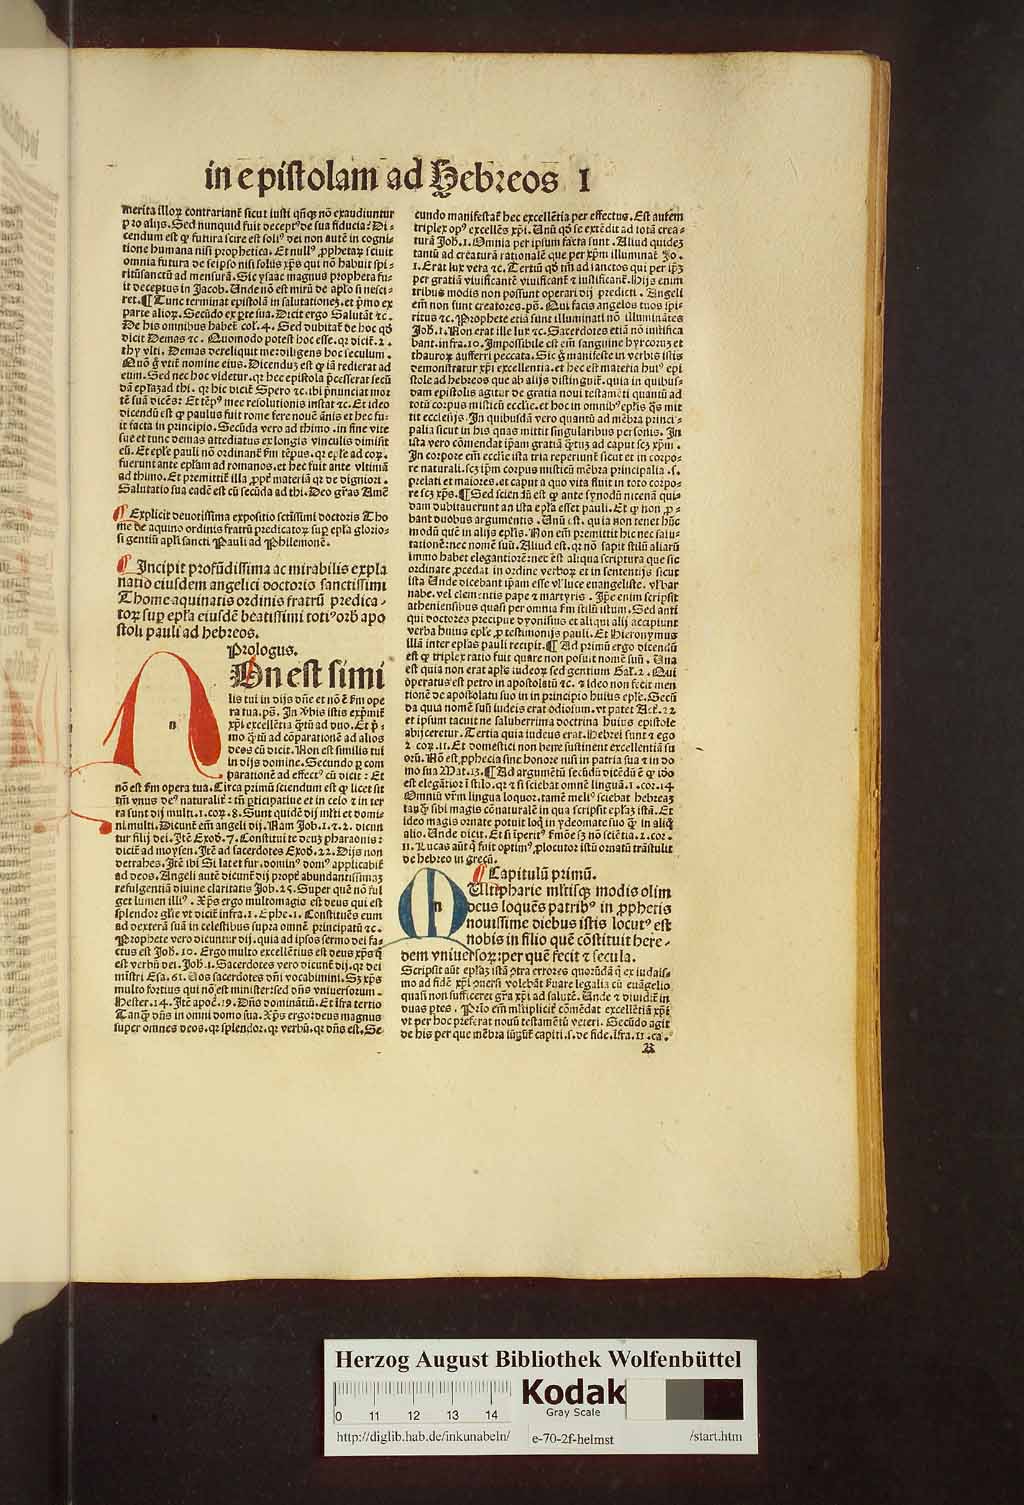 in epistolam ad Hebreos I
merita illoꝝ contrariant̄ sicut iusti qn̄qꝫ nō exaudiuntur
pro alijs. Sed nunquid fuit deceptꝰ de sua fiducia? Di-
cendum est ꝙ futura scire est soliꝰ dei non autē in cogni-
tione humana nisi prophetica. Et nullꝰ ꝓphetaꝝ sciuit
omnia futura de seipso nisi solus xp̄s qui nō habuit spi-
ritūsanctū ad mensurā. Sic ysaac magnus propheta fu-
it deceptus in Jacob. Unde nō est mirū de apl̄o si nesci-
ret. ¶ Tunc terminat epistolā in salutationeꝫ. et p̄mo ex
parte alioꝝ. Secūdo ex ꝑte sua. Dicit ergo Salutāt ⁊c.
De his omnibus habet̄ col̄. 4. Sed dubitat̄ de hoc qd̄
dicit Demas ⁊c. Quomodo potest hoc esse. qꝛ dicit̄. 2.
thy vlti. Demas dereliquit me: diligens hoc seculum.
Quō ḡ vtit̄ nomine eius. Dicenduꝫ est ꝙ iā redierat ad
eum. Sed nec hoc videtur. qꝛ hec epistola p̄cesserat secū
dā ep̄laꝫ ad thi. qꝛ hic dicit̄ Spero ⁊c. ibi p̄nunciat mor
tē suā dicēs: Et tēpꝰ mee resolutionis instat ⁊c. Et ideo
dicendū est ꝙ paulus fuit rome fere nouē ānis et hec fu-
it facta in principio. Secūda vero ad thimo. in fine vite
sue et tunc demas attediatus ex longis vinculis dimisit
eū. Et ep̄le pauli nō ordinant̄ ẜm tēpus. qꝛ ep̄le ad coꝝ.
fuerunt ante ep̄lam ad romanos. et hec fuit ante vltimā
ad thimo. Et premittit̄ illa ꝓpt̄ materiā qꝛ de digniori.
Salutatio sua eadē est cū secūda ad thi. Deo gr̄as Amē
¶ Explicit deuotissima expositio sctīssimi doctoris Tho
me de aquino ordinis fratrū predicatoꝝ suꝑ ep̄la glorio-
si gentiū apl̄i sancti Pauli ad Philemonē.
¶ Incipit profūdissima ac mirabilis expla
natio eiusdem angelici doctoris sanctissimi
Thome aquinatis ordinis fratrū predica-
toꝝ suꝑ ep̄la eiusdē beatissimi totiꝰ orbꝭ apo
stoli pauli ad hebreos.
Prologus.
n
On est simi
lis tui in dijs dn̄e et nō ē ẜm ope
ra tua. ps̄. In v̄bis istis exp̄mit̄
xp̄i excellētia q̄tū ad duo. Et p̄-
mo q̄tū ad cōparationē ad alios
deos cū dicit. Non est similis tui
in dijs domine. Secundo ꝑ com
parationē ad effectꝰ cū dicit: Et
nō est ẜm opera tua. Circa primū sciendum est ꝙ licet sit
tm̄ vnus deꝰ naturalit̄: tn̄ ꝑticipatiue et in celo ⁊ in ter
ra sunt dij multi. 1. coꝝ. 8. Sunt quidē dij ml̄ti et domi-
ni multi. Dicunt̄ em̄ angeli dij. Nam Job. 1. ⁊. 2. dicun
tur filij dei. Itē Exod̄. 7. Constitui te deuꝫ pharaonis:
dicit̄ ad moysen. Itē ad sacerdotes Exod̄. 22. Dijs non
detrahes. Itē ibi Si latet fur. dominꝰ domꝰ applicabit̄
ad deos. Angeli autē dicunt̄ dij propt̄ abundantissimaꝫ
refulgentiā diuine claritatis Job. 25. Super quē nō ful
get lumen illiꝰ. Xp̄s ergo multomagis est deus qui est
splendor gl̄ie vt dicit̄ infra. 1. Ephe. 1. Constituēs eum
ad dexterā suā in celestibus supra omnē principatū ⁊c.
Prophete vero dicuntur dij. quia ad ipsos sermo dei fa-
ctus est Joh̄. 10. Ergo multo excellētius est deus xp̄s q̄
est verbū dei. Joh̄. 1. Sacerdotes vero dicunt̄ dij. qꝛ dei
mīstri Esa. 61. Uos sacerdotes dn̄i vocabimini. Sꝫ xp̄s
multo fortius qui nō est minister: sed dn̄s vniuersorum.
Hester. 14. Itē apoc̄. 19. Dn̄s dominātiū. Et īfra tertio
Tanq̄ꝫ dn̄s in omni domo sua. Xp̄s ergo: deus magnus
super omnes deos. qꝛ splendor. qꝛ verbū. qꝛ dn̄s est. Se-
cundo manifestat̄ hec excellētia per effectus. Est autem
triplex opꝰ excellēs xp̄i. Unū qd̄ se extēdit ad totā crea-
turā Joh̄. 1. Omnia per ipsum facta sunt. Aliud quideꝫ
tantū ad creaturā rationalē que per xp̄m illuminat̄ Jo.
1. Erat lux vera ⁊c. Tertiū qd̄ tm̄ ad sanctos qui per ip̄ꝫ
per gratiā viuificantē viuificant̄ ⁊ iustificant̄. Hijs enim
tribus modis non possunt operari dij predicti. Angeli
em̄ non sunt creatores. ps̄. Qui facis angelos tuos spi-
ritus ⁊c. Prophete etiā sunt illuminati nō illuminātes
Joh̄. 1. Non erat ille lux ⁊c. Sacerdotes etiā nō iustifica
bant. infra. 10. Impossibile est em̄ sanguine hyrcoruꝫ et
thauroꝝ aufferri peccata. Sic ḡ manifeste in verbis istis
demonstratur xp̄i excellentia. et hec est materia huiꝰ epi
stole ad hebreos que ab alijs distinguit̄. quia in quibus-
dam epistolis agitur de gratia noui testamēti quantū ad
totū corpus misticū eccl̄ie. et hoc in omnibꝰ ep̄lis q̄s mit
tit ecclesijs. In quibusdā vero quantū ad mēbra princi-
palia sicut in his quas mittit singularibus personis. In
ista vero cōmendat ip̄am gratiā q̄tuꝫ ad caput scꝫ xp̄m.
In corpore em̄ eccl̄ie ista tria reperiunt̄ sicut et in corpo-
re naturali. scꝫ ip̄m corpus misticū mēbra principalia .s.
prelati et maiores. et caput a quo vita fluit in toto corpo-
re scꝫ xp̄s. ¶ Sed sciendū est ꝙ ante synodū nicenā qui-
dam dubitauerunt an ista ep̄la esset pauli. Et ꝙ non ꝓ-
bant duobus argumentis. Unū est. quia non tenet hūc
modū quē in alijs ep̄lis. Non em̄ premittit hic nec salu-
tationē: nec nomē suū. Aliud est. qꝛ nō sapit stilū aliarū
immo habet elegantiorē: nec ēst aliqua scriptura que sic
ordinate ꝓcedat in ordine verboꝝ et in sententijs sicut
ista Unde dicebant ip̄am esse vꝉ luce euangeliste. vꝉ bar
nabe. vel clementis pape ⁊ martyris. Ip̄e enim scripsit
atheniensibus quasi per omnia ẜm stilū istum. Sed anti
qui doctores precipue dyonisius et aliqui alij accipiunt
verba huius ep̄le ꝓ testimonijs pauli. Et Hieronymus
illā inter ep̄las pauli recipit. ¶ Ad primū ergo dicendū
est ꝙ triplex ratio fuit quare non posuit nomē suū. Una
est quia non erat apl̄s iudeoꝝ sed gentium Gal̄. 2. Qui
operatus est petro in apostolatū ⁊c. ⁊ ideo non fecit men
tionē de apostolatu suo in in principio huius ep̄le. Secū
da quia nomē suū iudeis erat odiosum. vt patet Act̄. 22
et ipsum tacuit ne saluberrima doctrina huius epistole
abijceretur. Tertia quia iudeus erat. Hebrei sunt ⁊ ego
2 coꝝ. 11. Et domestici non bene sustinent excellentiā su
oꝝ. Nō est ꝓphecia sine honore nisi in patria sua ⁊ in do
mo sua Mat̄. 13. ¶ Ad argumētū secūdū dicēdū ē ꝙ iō
est elegātior ī stilo. qꝛ ⁊ si sciebat omnē linguā. 1. cor. 14
Omniū vr̄m lingua loquor. tamē meliꝰ sciebat hebreaꝫ
tanq̄ꝫ sibi magis cōnaturalē in qua scripsit ep̄laꝫ istā. Et
ideo magis ornate potuit loqͥ in ydeomate suo q̄ꝫ in aliqͦ
alio. Unde dicit. Et si īperitꝰ ẜmōe sꝫ nō sciētia. 2. cor.
11. Lucas aūt qͥ fuit optimꝰ ꝓlocutor istū ornatū trāstulit
de hebreo in grecū.
¶ Capitulū primū.
m
Ultipharie ml̄tisqꝫ modis olim
deus loquēs patribꝰ in ꝓphetis
nouissime diebus istis locutꝰ est
nobis in filio quē cōstituit here-
dem vniuersoꝝ: per quē fecit ⁊ secula.
Scripsit aūt ep̄laꝫ istā ꝯtra errores quorūdā qͥ ex iudais-
mo ad fidē xp̄i ꝯuersi volebāt ẜuare legalia cū euāgelio
quasi non sufficeret gr̄a xp̄i ad salutē. Unde ⁊ diuidit̄ in
duas ꝑtes. Prīo em̄ ml̄tipliciꝉ cōmēdat excellētiā xp̄i
vt per hoc preferat nouū testamētū veteri. Secūdo agit
de his per que mēbra iūgūt̄ capiti .s. de fide. īfra. 11. ca.
B
Herzog August Bibliothek Wolfenbüttel
0 11 12 13 14
Kodak
Gray Scale
http://diglib.hab.de/inkunabeln/ e-70-2f-helmst /start.htm